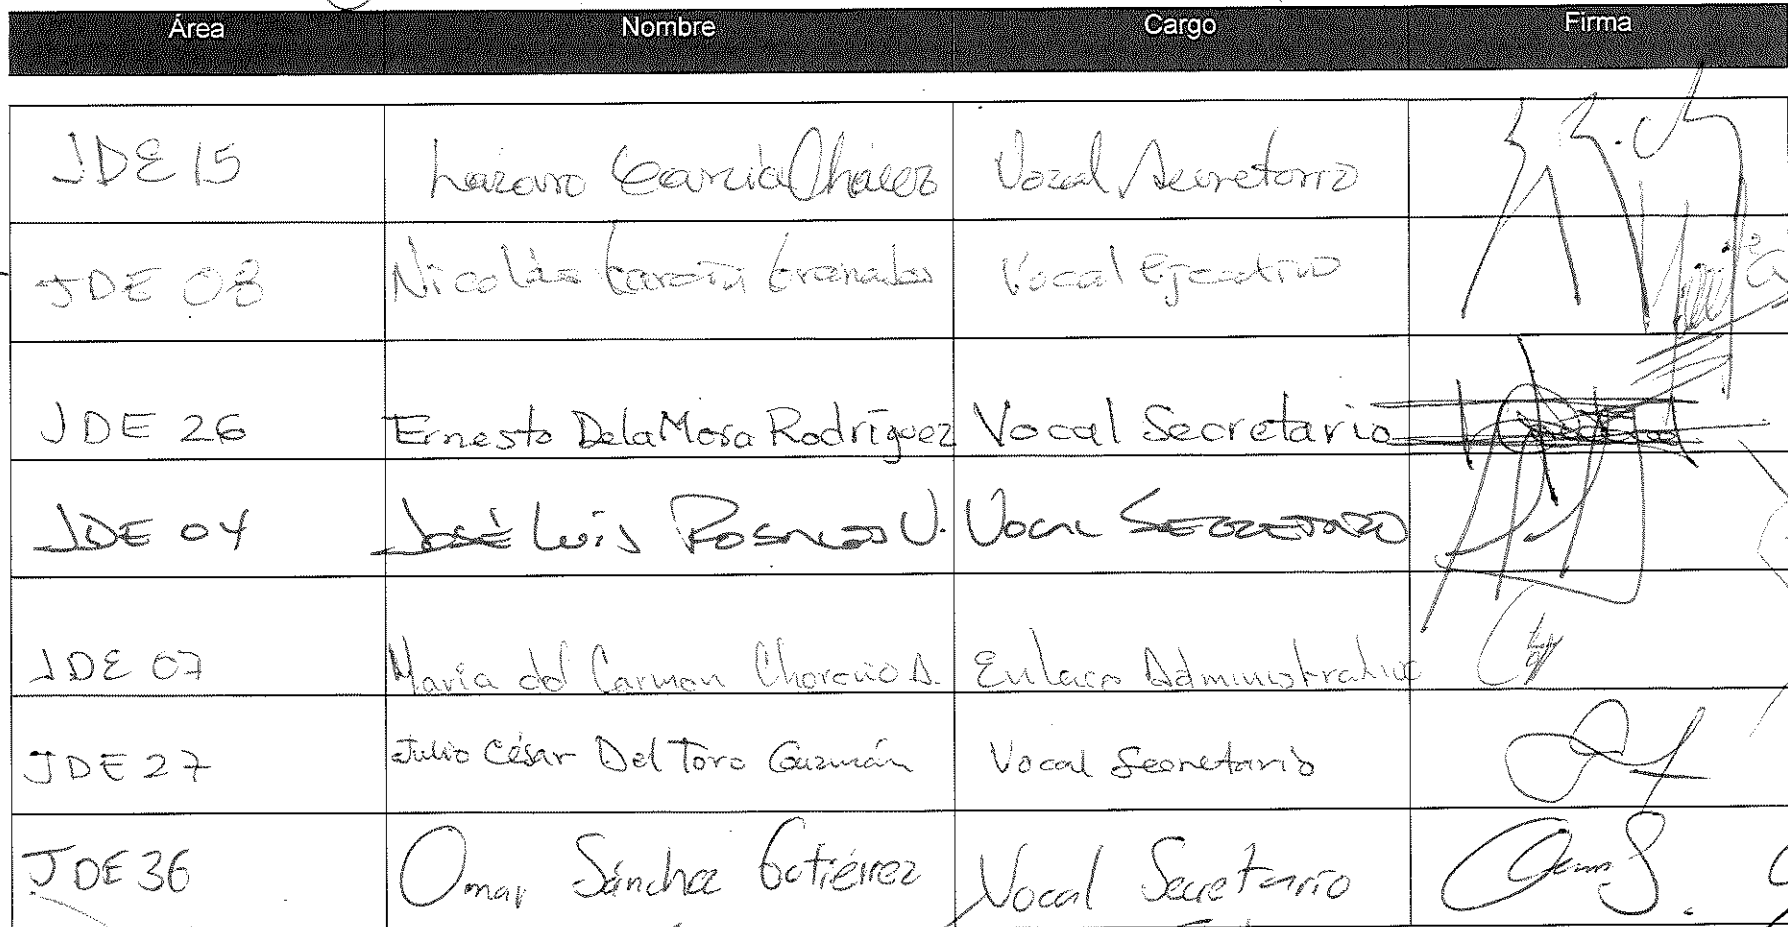 Área Nombre Cargo Firma
JDE 15 Lázaro García Chávez Vocal Secretario
JDE 08 Nicolás García Granados Vocal Ejecutivo
JDE 26 Ernesto De la Mora Rodríguez Vocal Secretario
JDE 04 José Luis Rosales V. Vocal Secretario
JDE 07 María del Carmen Choreño D. Enlace Administrativo
JDE 27 Julio César Del Toro Guzmán Vocal Secretario
JDE 36 Omar Sánchez Gutiérrez Vocal Secretario